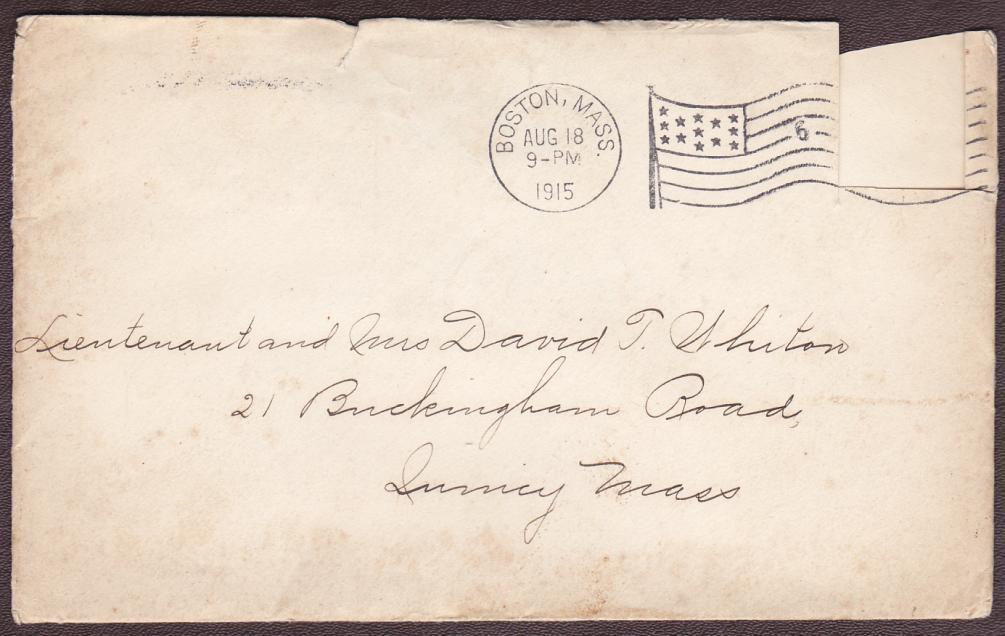 BOSTON, MASS.
AUG 18
9-PM
1915
6
Lieutenant and Mrs David T. Whiton
21 Buckingham Road,
Quincy Mass